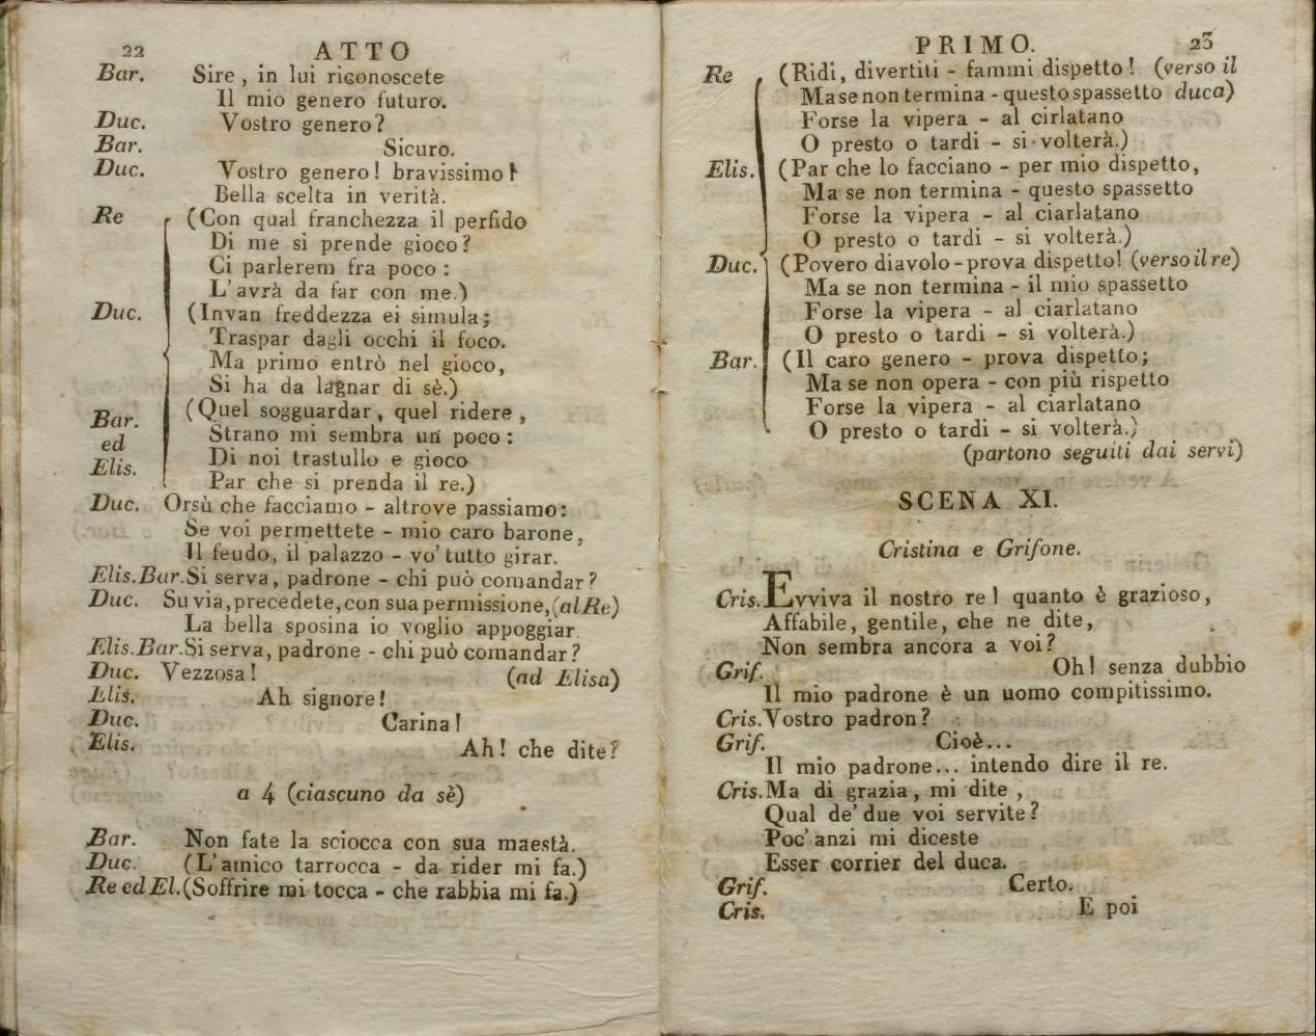 22 ATTO
Bar. Sire, in lui riconoscete
Il mio genero futuro.
Duc. Vostro genero?
Bar. Sicuro.
Duc. Vostro genero! bravissimo!
Bella scelta in verità.
Re (Con qual franchezza il perfido
Di me si prende gioco?
Ci parlerem fra poco:
L'avrà da far con me.)
Duc. (Invan freddezza ei simula;
Traspar dagli occhi il foco.
Ma primo entrò nel gioco,
Si ha da lagnar di sè.)
Bar. ed Elis. (Quel sogguardar, quel ridere,
Strano mi sembra un poco:
Di noi trastullo e gioco
Par che si prenda il re.)
Duc. Orsù che facciamo - altrove passiamo:
Se voi permettete - mio caro barone,
Il feudo, il palazzo - vo' tutto girar.
Elis. Bar. Si serva, padrone - chi può comandar?
Duc. Su via, precedete, con sua permissione, (al Re)
La bella sposina io voglio appoggiar.
Elis. Bar. Si serva, padrone - chi può comandar?
Duc. Vezzosa! (ad Elisa)
Elis. Ah signore!
Duc. Carina!
Elis. Ah! che dite?
a 4 (ciascuno da sè)
Bar. Non fate la sciocca con sua maestà.
Duc. (L'amico tarrocca - da rider mi fa.)
Re ed El. (Soffrire mi tocca - che rabbia mi fa.)
PRIMO. 23
Re (Ridi, divertiti - fammi dispetto! (verso il
Ma se non termina - questo spassetto duca)
Forse la vipera - al cirlatano
O presto o tardi - si volterà.)
Elis. (Par che lo facciano - per mio dispetto,
Ma se non termina - questo spassetto
Forse la vipera - al ciarlatano
O presto o tardi - si volterà.)
Duc. (Povero diavolo - prova dispetto! (verso il re)
Ma se non termina - il mio spassetto
Forse la vipera - al ciarlatano
O presto o tardi - si volterà.)
Bar. (Il caro genero - prova dispetto;
Ma se non opera - con più rispetto
Forse la vipera - al ciarlatano
O presto o tardi - si volterà.)
(partono seguiti dai servi)
SCENA XI.
Cristina e Grifone.
Cris. Evviva il nostro re! quanto è grazioso,
Affabile, gentile, che ne dite,
Non sembra ancora a voi?
Grif. Oh! senza dubbio
Il mio padrone è un uomo compitissimo.
Cris. Vostro padron?
Grif. Cioè...
Il mio padrone... intendo dire il re.
Cris. Ma di grazia, mi dite,
Qual de' due voi servite?
Poc' anzi mi diceste
Esser corrier del duca.
Grif. Certo.
Cris. E poi